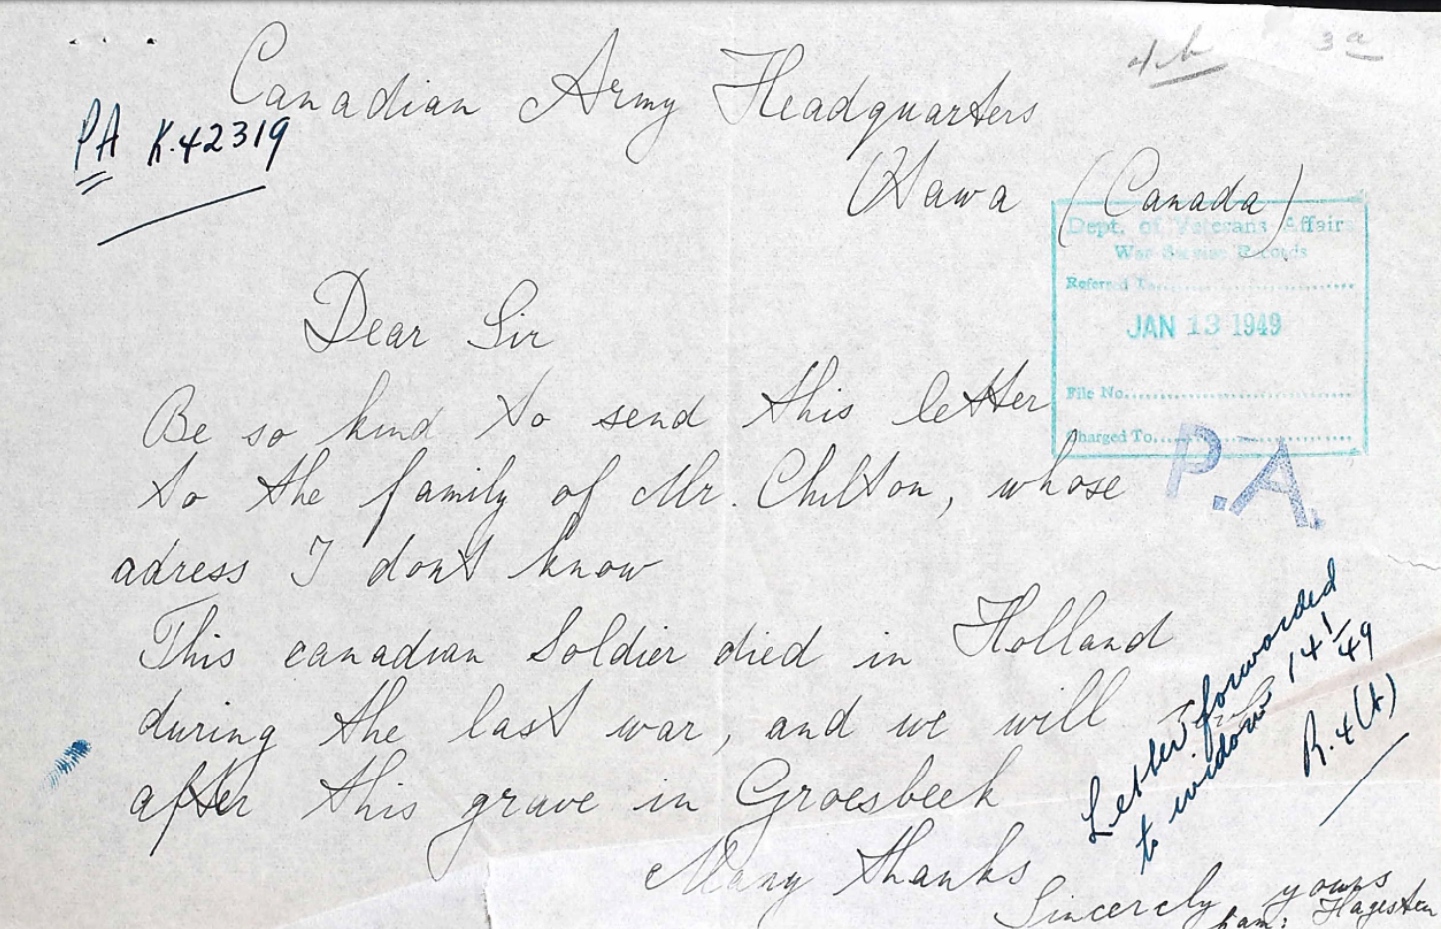 4b 3a
Canadian Army Headquarters
PA K.42319
Ottawa (Canada)
Dept. of Veterans Affairs
War Service Records
Referred To
JAN 13 1949
File No.
Charged To
P.A.
Dear Sir
Be so kind to send this letter
to the family of Mr. Chilton, whose
adress I dont know
This canadian Soldier died in Holland
during the last war, and we will
after this grave in Groesbeek
Many thanks
Sincerely yours
fam: Hagesten
Letter forwarded
to widow 14/1/49
R.4(t)